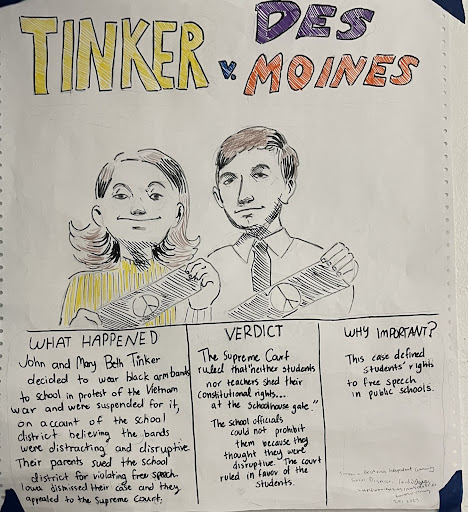 TINKER v. DES MOINES
WHAT HAPPENED
John and Mary Beth Tinker
decided to wear black armbands
to school in protest of the Vietnam
war and were suspended for it,
on account of the school
district believing the bands
were distracting and disruptive
Their parents sued the school
district for violating free speech.
Iowa dismissed their case and they
appealed to the Supreme Court.
VERDICT
The Supreme Court
ruled that "neither students
nor teachers shed their
constitutional rights...
at the schoolhouse gate."
The school officials
could not prohibit
them because they
thought they were
disruptive. The court
ruled in favor of the
students.
WHY IMPORTANT?
This case defined
students' rights
to free speech
in public schools.